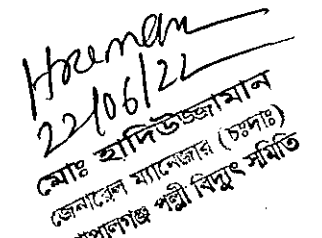 22/06/22
মোঃ হাদিউজ্জামান
জেনারেল ম্যানেজার (চঃদাঃ)
পালগঞ্জ পল্লী বিদ্যুৎ সমিতি